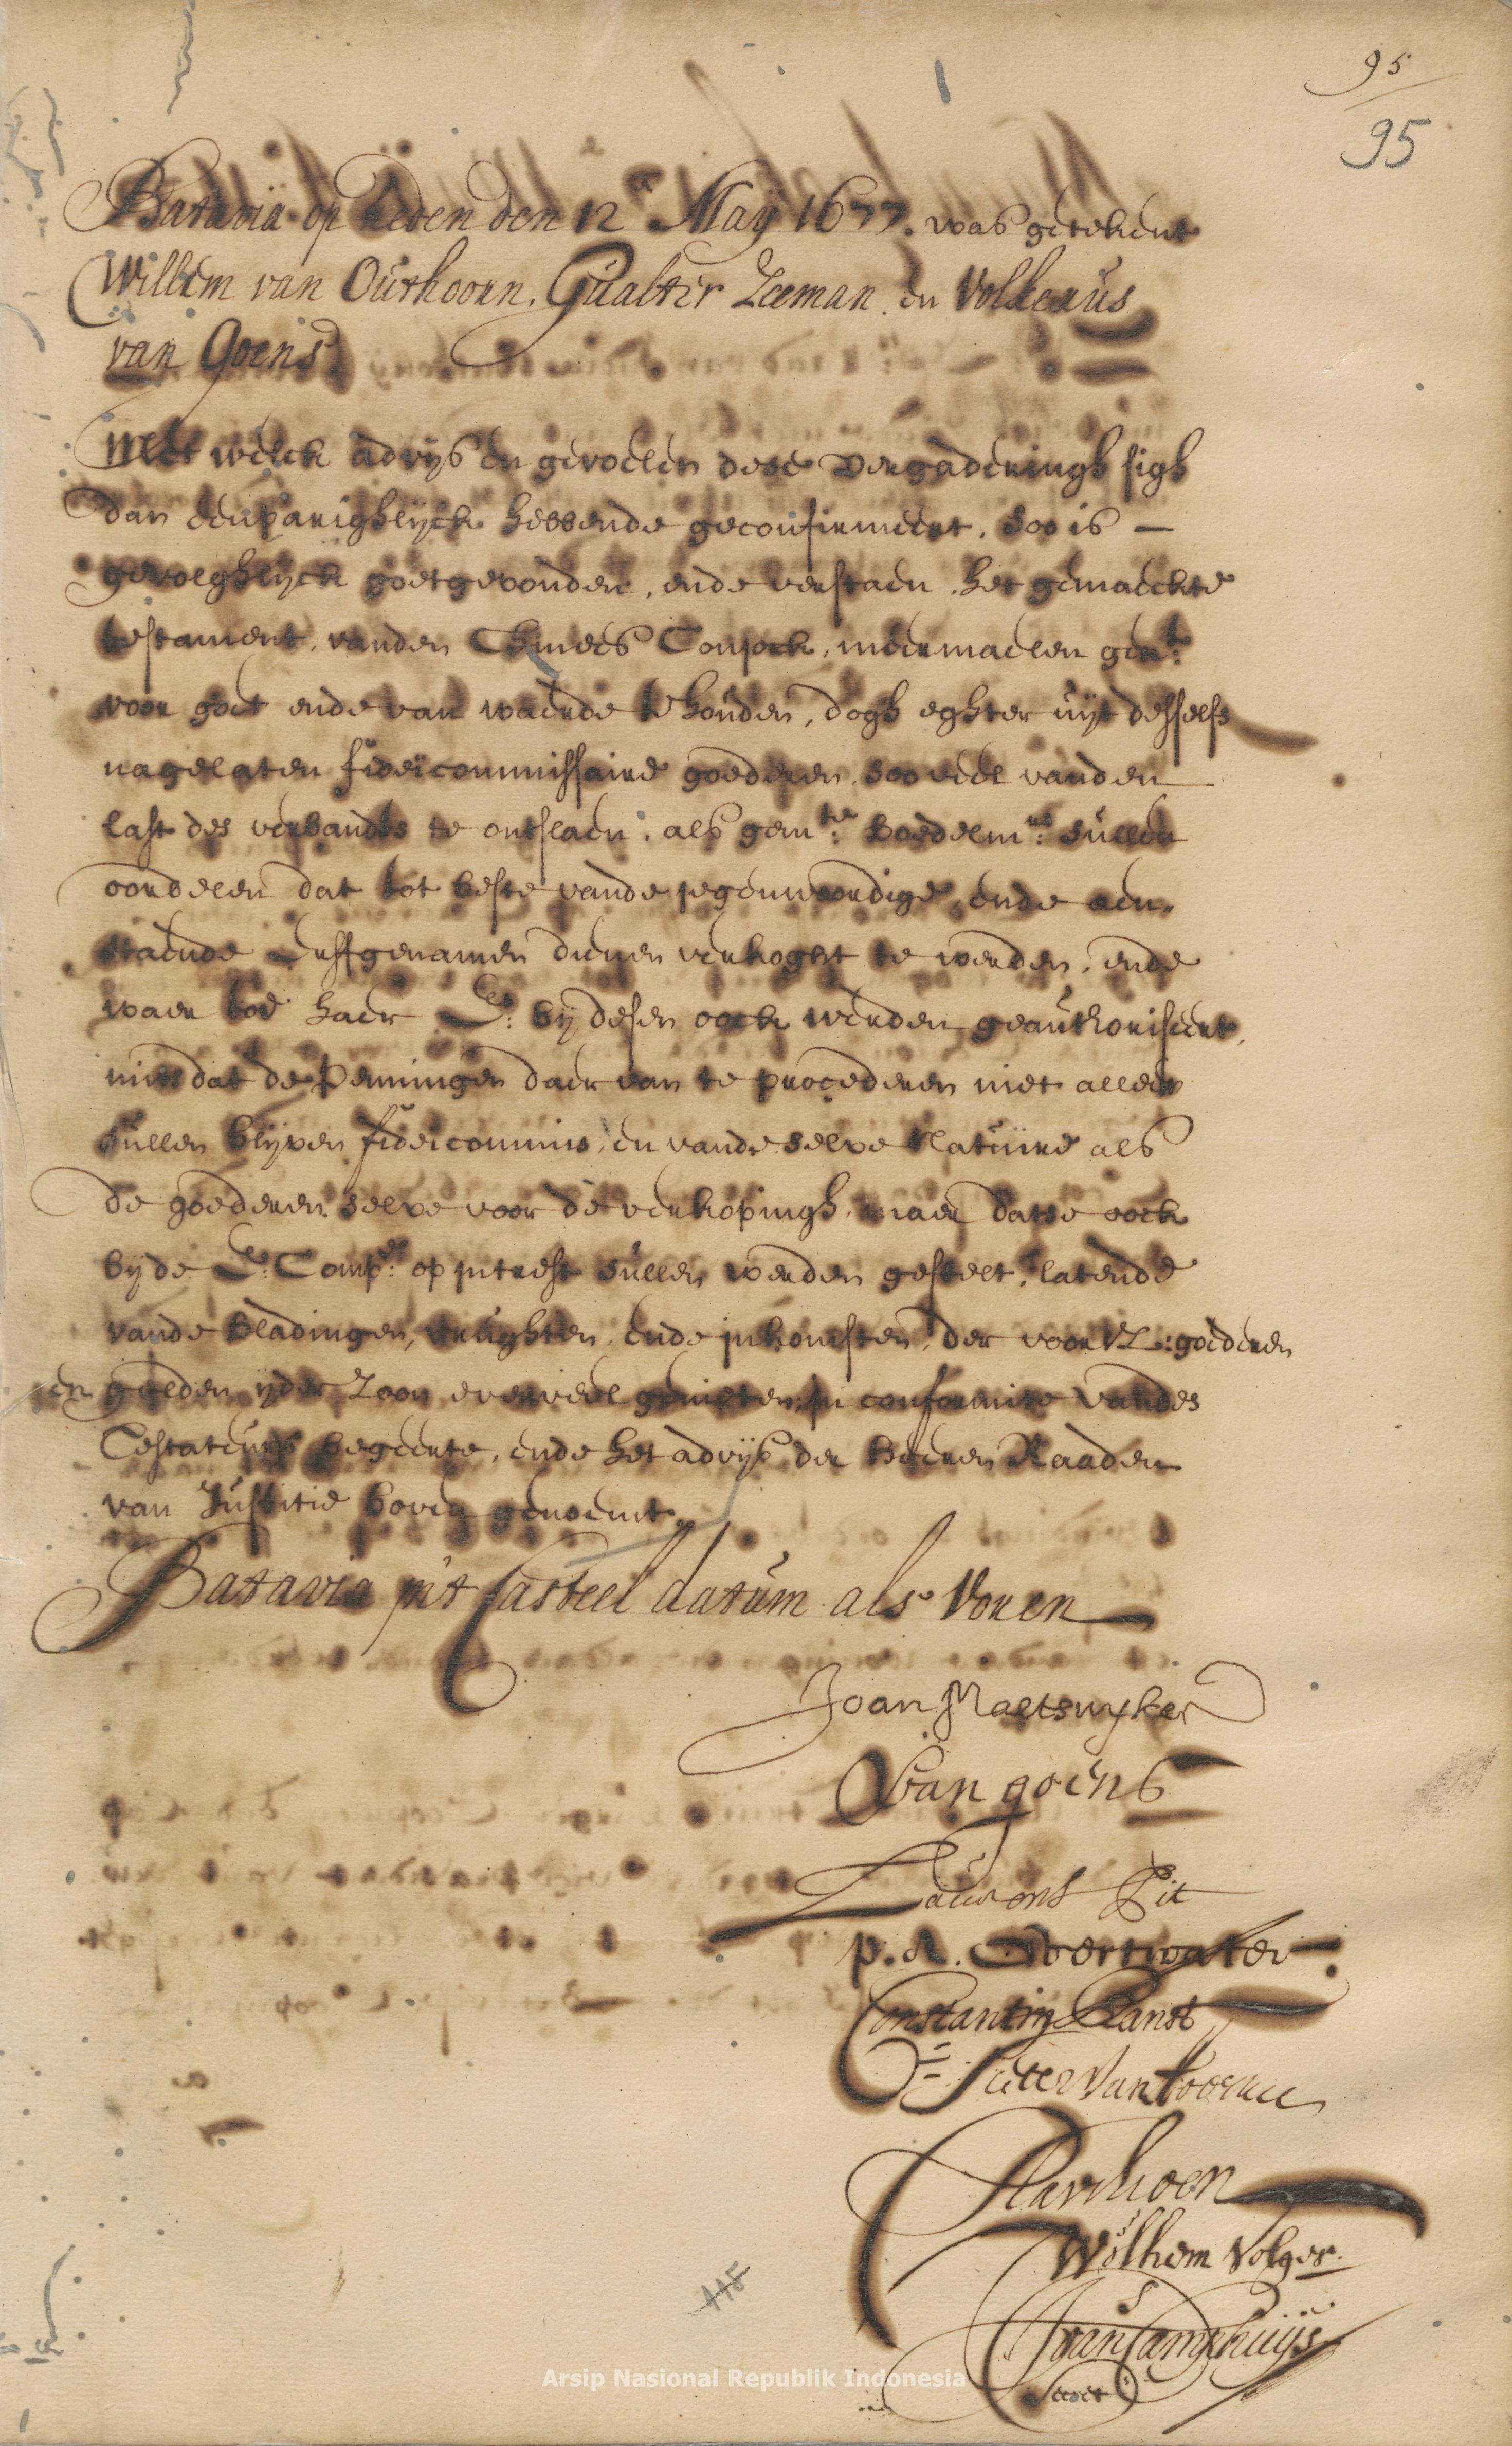 95
95
Batavia op heden den 12 Maij 1677. was getekent
Willem van Outhoorn. Gualter Zeeman. en Volkerus
van Goens
Met welck advijs en gevoelen dese vergaderingh sigh
dan eenparighlijck hebbende geconfirmeert, soo is —
gevolghlijck goetgevonden, ende verstaen, het gemaeckte
testament, vanden Chinees Conjock, meermaelen gen.t
voor goet ende van waerde te houden, dogh eghter uijt desselfs
nagelaten fideicommissaire goederen soo veel vanden
last des verbandts te ontslaen, als gem.te Boedelm.rs sullen
oordelen dat tot beste vande jegenwoordige, ende aen„
staende Erffgenamen dienen verkoght te werden, ende
waer toe haer E: bij desen oock werden geauthoriseert,
mits dat de Penningen daer van te procederen niet alleen
sullen blijven fideicommis, en vande selve Natuire als
de goederen selve voor de verkopingh, maer datse oock
bij de E: Comp: op intrest sullen werden gestelt, latende
vande Bladingen, vrughten, ende inkomsten, der voorsz: goederen
en gelden ijder Zoon evenveel genieten, in conformite vandes
Testateurs begeerte, ende het advijs der Heeren Raaden
van Justitie boven genoemt.
Batavia in't Casteel datum als Voren
Joan Maetsuyker
Van goens
Laurens Pit
P. A. Overtwater
Constantin Ranst
Pieter Van hoorn
Willem Volger.
Joan Camphuijs
Secret
118
Arsip Nasional Republik Indonesia